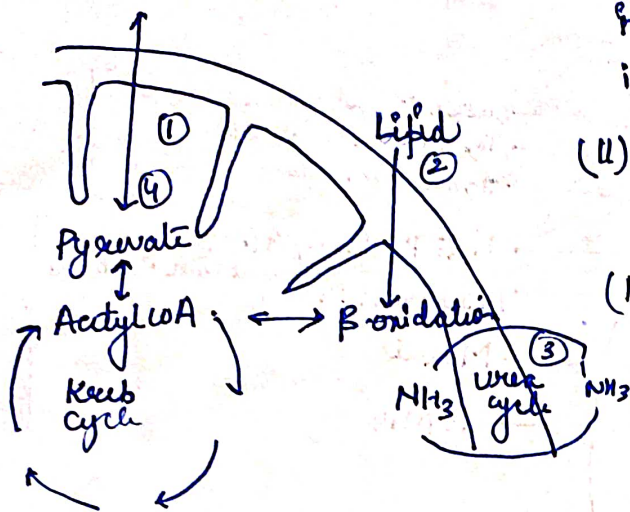 ①
Lipid
②
(II)
④
Pyruvate
Acetyl coA
β-oxidation
③
Kreb
cycle
NH3
urea
cycle
NH3